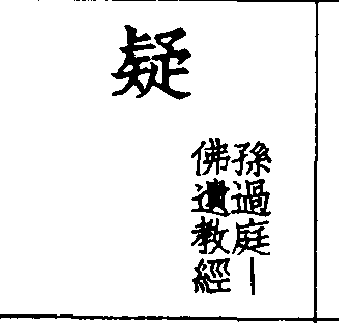 疑
孫過庭—
佛遺教經